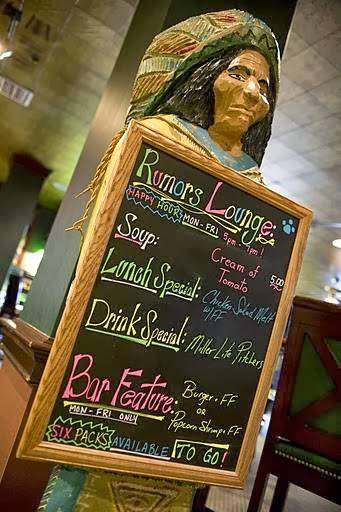 Rumors Lounge:
HAPPY HOUR! MON - FRI 5pm - 7pm!
Soup: Cream of Tomato 5.00
Lunch Special: Chicken Salad Melt w/FF
Drink Special: Miller Lite Pitchers
Bar Feature: Burger + FF
or
MON - FRI ONLY Popcorn Shrimp + FF
SIX PACKS AVAILABLE TO GO!